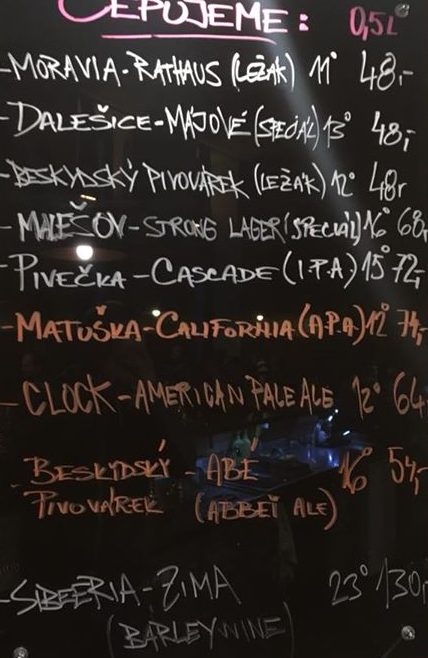 ČEPUJEME: 0,5L
-MORAVIA-RATHAUS (LEŽÁK) 11° 48,-
-DALEŠICE-MÁJOVÉ (SPECIÁL) 13° 48,-
-BESKYDSKÝ PIVOVÁREK (LEŽÁK) 12° 48,-
-MALEŠOV-STRONG LAGER (SPECIÁL) 16° 68,-
-PIVEČKA-CASCADE (I.P.A) 15° 72,-
-MATUŠKA-CALIFORNIA (A.P.A) 12° 74,-
-CLOCK-AMERICAN PALE ALE 12° 64
-BESKYDSKÝ - ABÉ 16° 54,-
PIVOVÁREK (ABBEI ALE)
-SIBEERIA-ZIMA 23° 130,-
(BARLEYWINE)